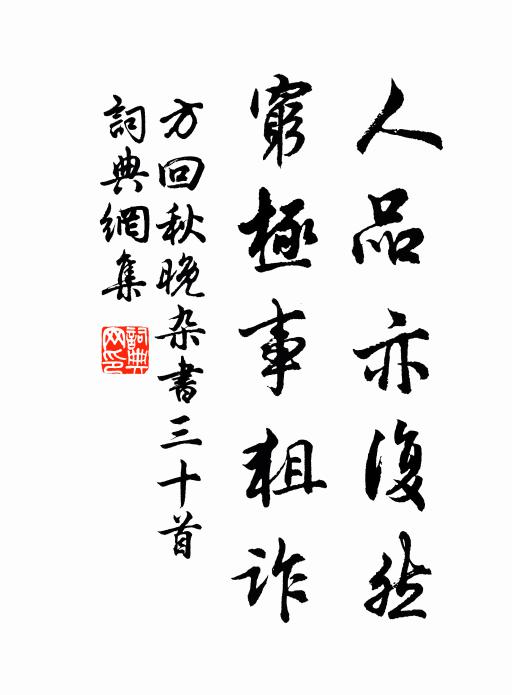 人品亦復然
窮極事粗詐
方回秋晚杂書三十首
詞典網集
詞典網印